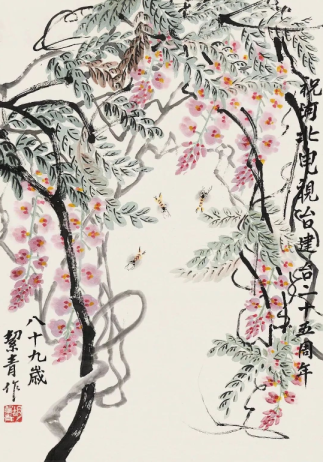 祝河北电视台建台二十五周年
八十九岁
絜青作